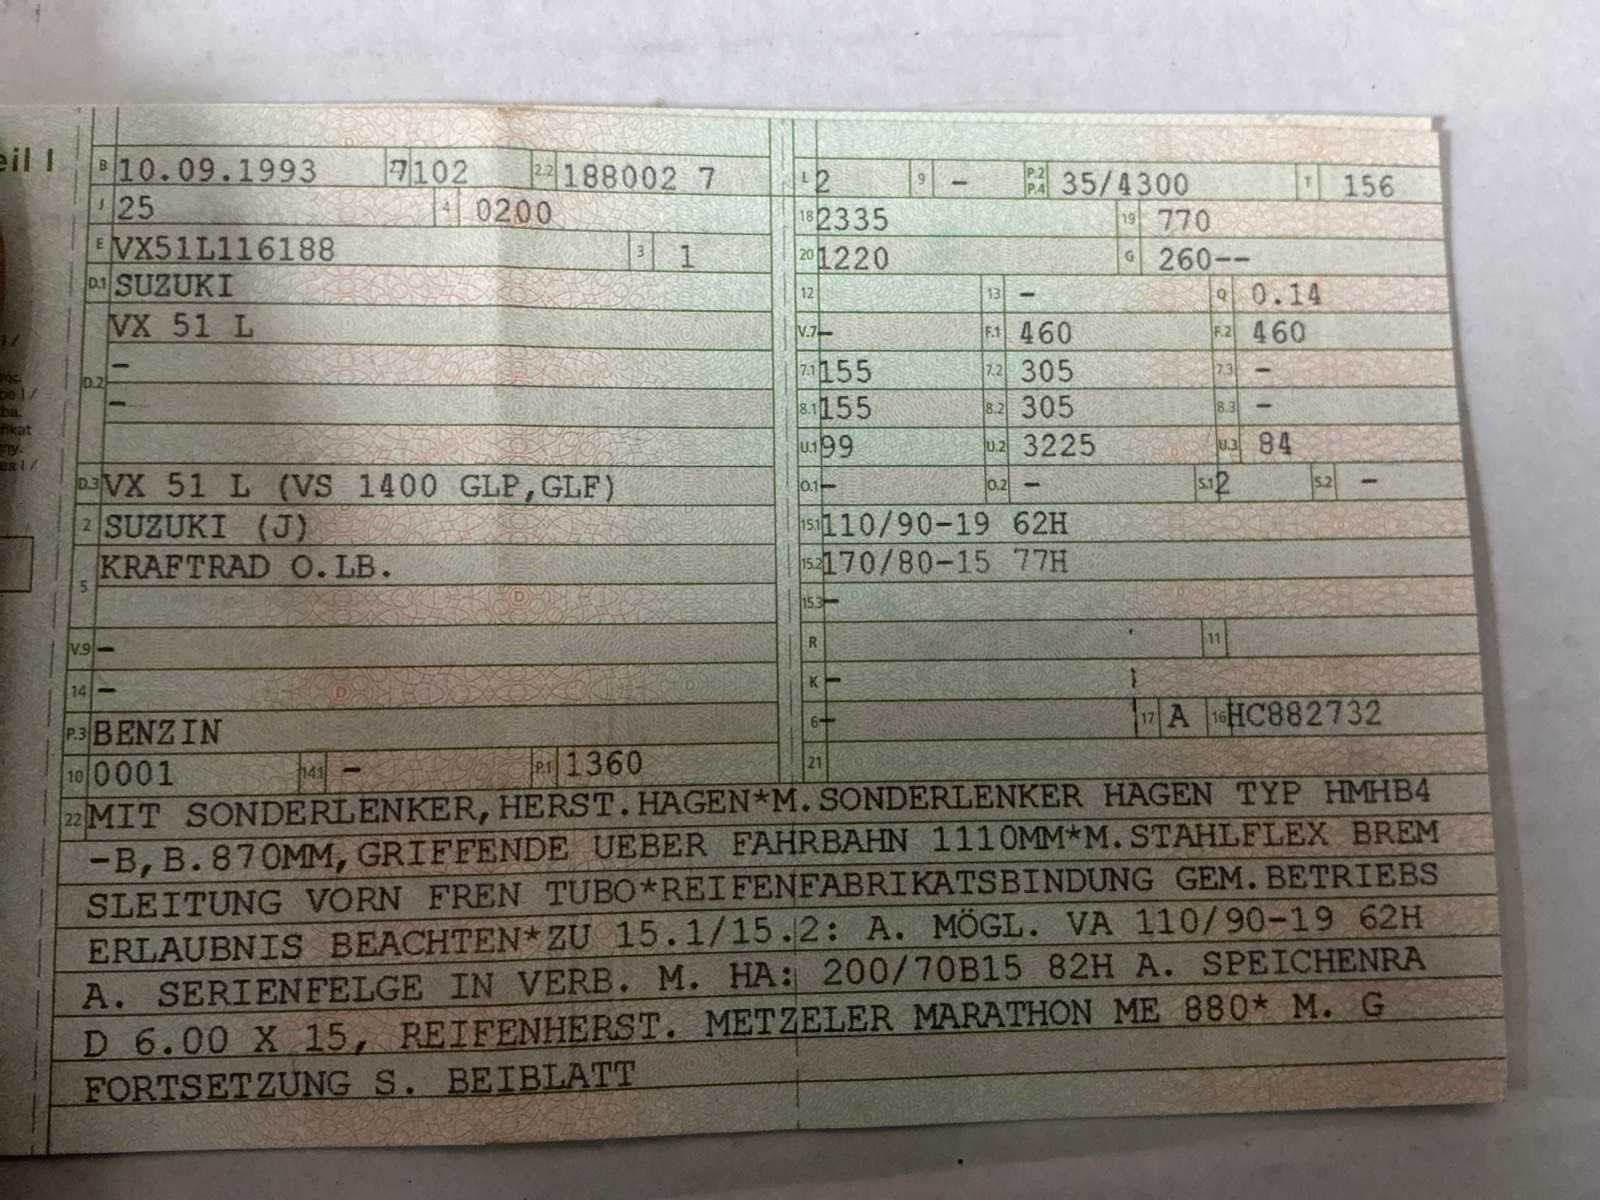 eil I
B 10.09.1993 2.1 7102 2.2 188002 7
J 25 4 0200
E VX51L116188 3 1
D.1 SUZUKI
D.2 VX 51 L
-
-
D.3 VX 51 L (VS 1400 GLP,GLF)
2 SUZUKI (J)
5 KRAFTRAD O.LB.
V.9 -
14 -
P.3 BENZIN
10 0001 14.1 - P.1 1360
L 2 9 - P.2 P.4 35/4300 T 156
18 2335 19 770
20 1220 G 260--
12 13 - Q 0.14
V.7 - F.1 460 F.2 460
7.1 155 7.2 305 7.3 -
8.1 155 8.2 305 8.3 -
U.1 99 U.2 3225 U.3 84
O.1 - O.2 - S.1 2 S.2 -
15.1 110/90-19 62H
15.2 170/80-15 77H
15.3 -
R 11
K -
6 - 17 A 16 HC882732
21
22 MIT SONDERLENKER,HERST.HAGEN*M.SONDERLENKER HAGEN TYP HMHB4
-B,B.870MM,GRIFFENDE UEBER FAHRBAHN 1110MM*M.STAHLFLEX BREM
SLEITUNG VORN FREN TUBO*REIFENFABRIKATSBINDUNG GEM.BETRIEBS
ERLAUBNIS BEACHTEN*ZU 15.1/15.2: A. MÖGL. VA 110/90-19 62H
A. SERIENFELGE IN VERB. M. HA: 200/70B15 82H A. SPEICHENRA
D 6.00 X 15, REIFENHERST. METZELER MARATHON ME 880* M. G
FORTSETZUNG S. BEIBLATT